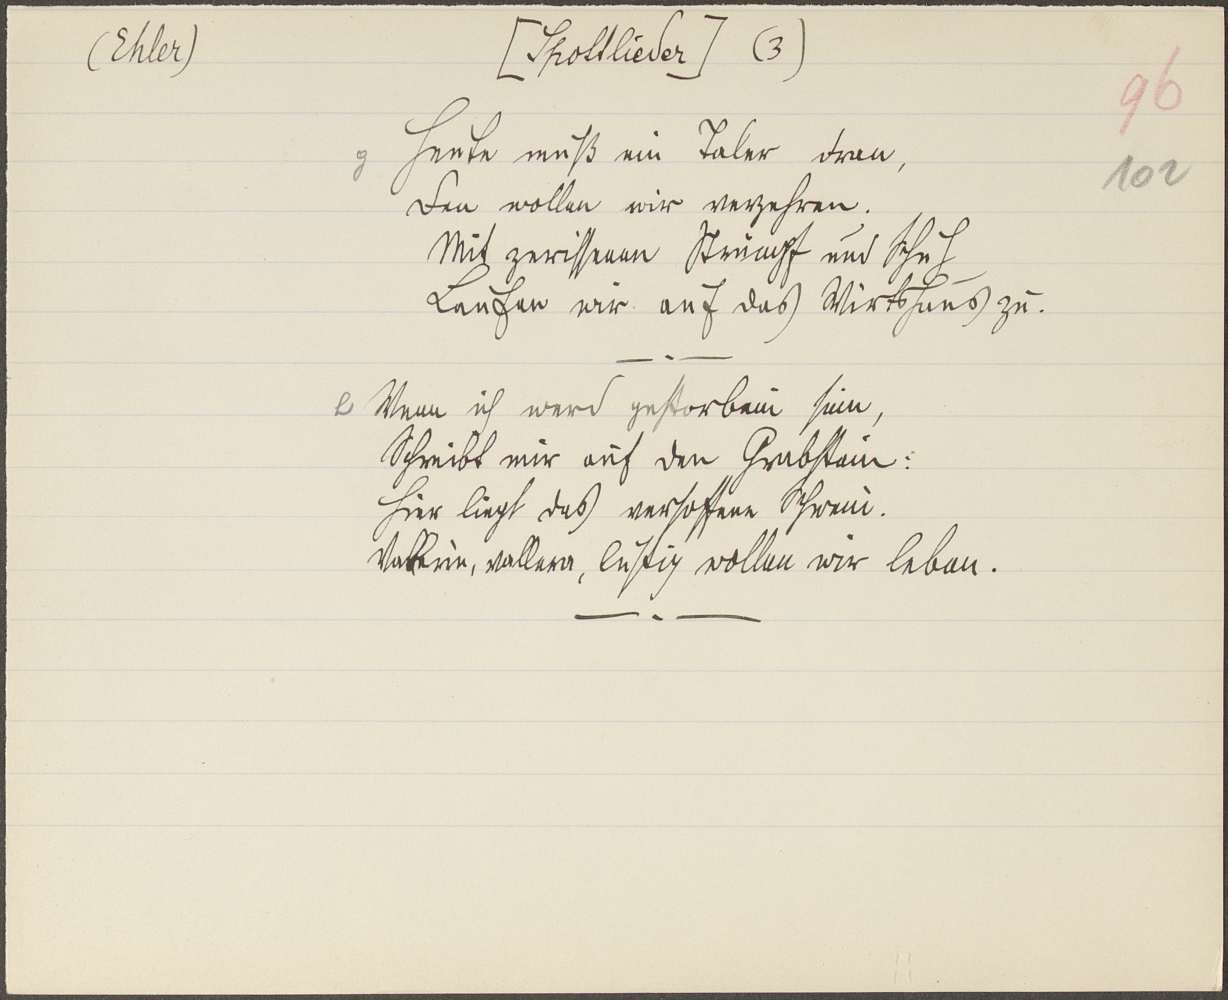 (Ehler) [Spottlieder] (3)
96
g Heute muß ein Taler dran,
102
Den wollen wir verzehren.
Mit zerissenen Strumpf und Schuh
Laufen wir auf das Wirtshaus zu.
Wenn ich werd gestorben sein,
Schreibt mir auf den Grabstein:
Hier liegt das versoffene Schwein.
Vallerin, vallera, lustig wollen wir leben.